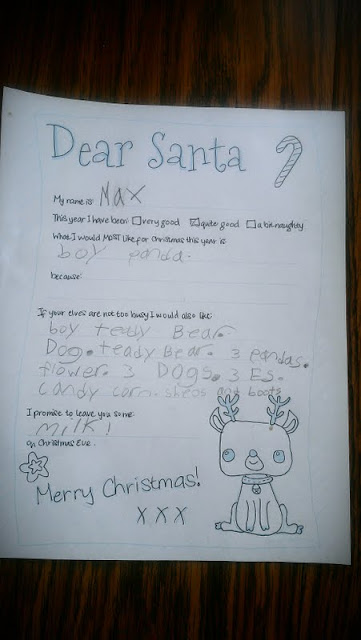 Dear Santa
My name is: Max
This year I have been: very good quite good a bit naughty
What I would MOST like for Christmas this year is:
boy panda.
because:
If your elves are not too busy I would also like:
boy teady Bear.
Dog. teady Bear. 3 pandas.
flower. 3 DOgs. 3 Es.
candy corn. sheos and boots
I promise to leave you some:
milk!
on Christmas Eve.
Merry Christmas!
X X X